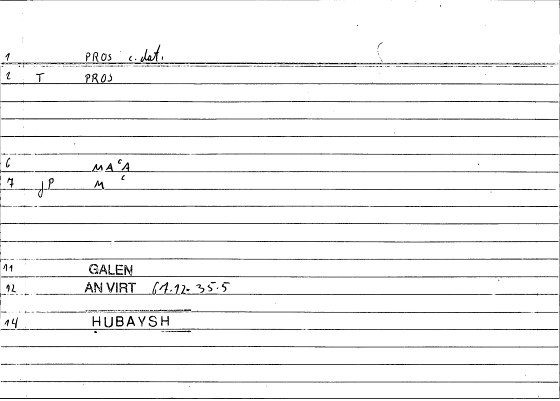 1 PROS c. dat.
2 T PROS
6 MAᶜA
7 jP Mᶜ
11 GALEN
12 AN VIRT 61.12-35.5
14 HUBAYSH